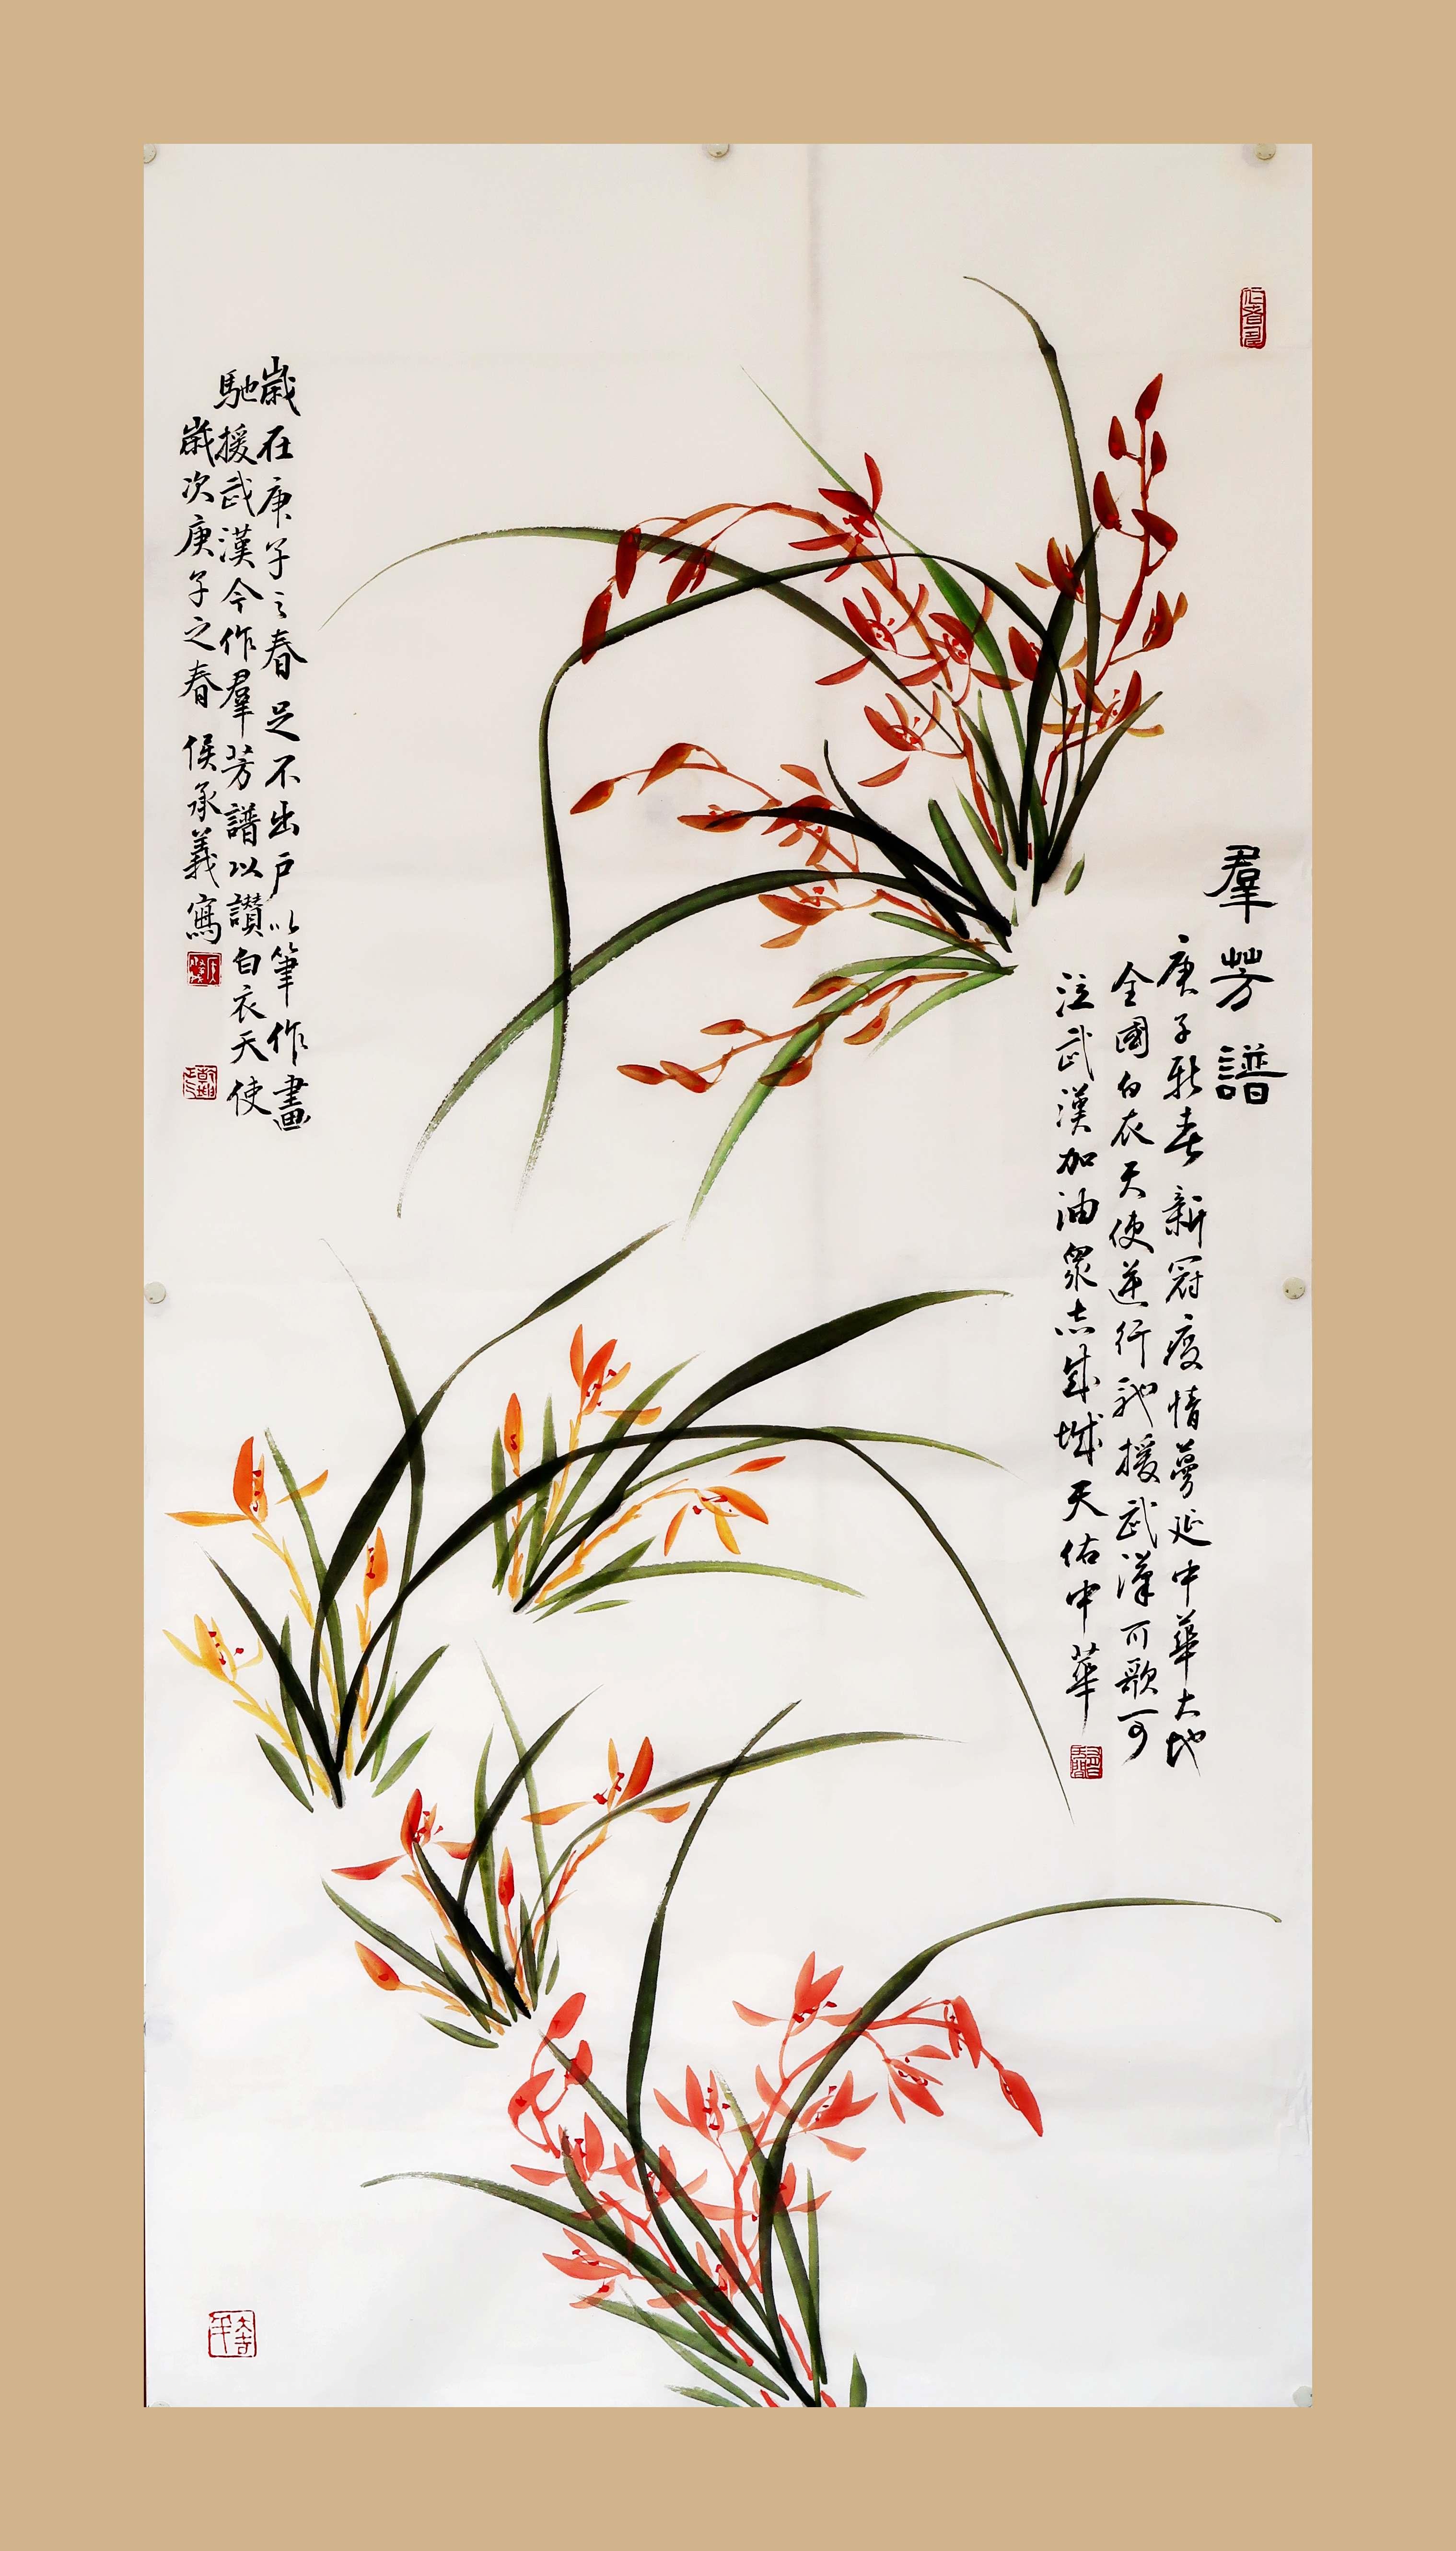 羣芳譜
庚子新春新冠疫情蔓延中華大地
全國白衣天使逆行馳援武漢可歌可
泣武漢加油眾志成城天佑中華
歲在庚子之春足不出戶以筆作畫
馳援武漢今作羣芳譜以讚白衣天使
歲次庚子之春侯承義寫
大吉羊